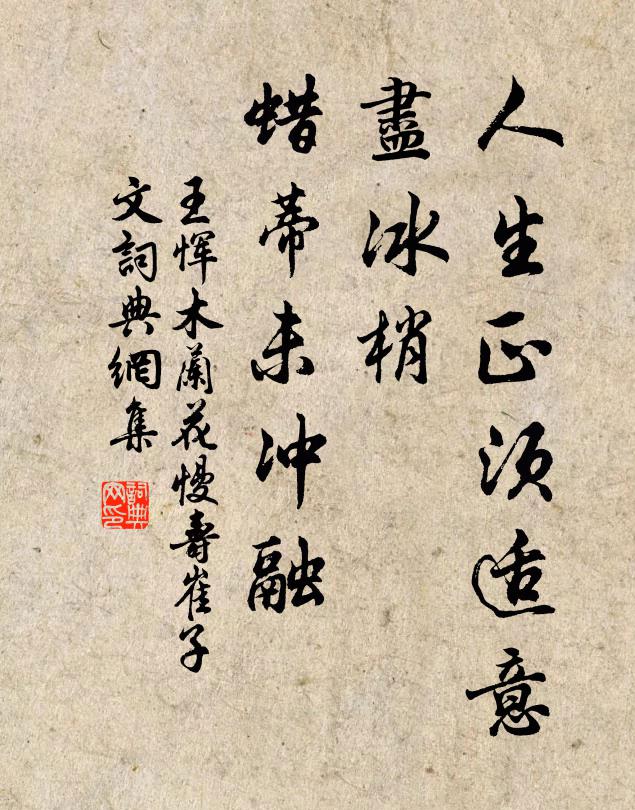 人生正须适意
盡冰梢
蜡蒂未冲融
王恽木蘭花慢壽崔子
文詞典網集
詞典
网印